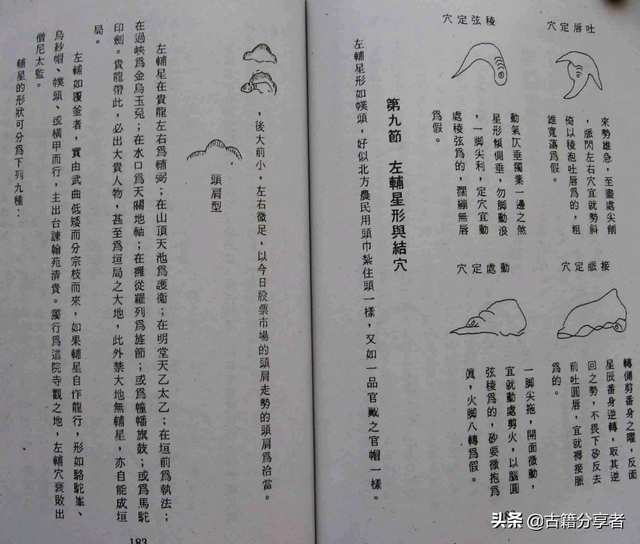 吐唇定穴
來勢雄急，至盡處尖創
，脈閃左右穴宜就勢斜
倚以稜弦吐唇爲的，粗
雄寬蕩爲假。
稜弦定穴
動氣仄垂獨葉一邊之煞
星形傾側垂，勿脚動浪
，一脚尖利，定穴宜動
處稜弦爲的，飜繃無唇
爲假。
接脈定穴
轉側剪番身之曜，反面
星辰番身逆轉，取其逆
回之勢，不畏下砂反去
前吐圓唇，宜就褥接脈
爲的。
動處定穴
一脚尖拖，開面微動，
宜就動處剪火，以腦圓
弦稜爲的，砂要微抱爲
眞，火脚八轉爲假。
第九節　左輔星形與結穴
左輔星形如幞頭，好似北方農民用頭巾紮住頭一樣，又如一品官戴之官帽一樣。
，後大前小，左右微足，以今日股票市場的頭肩走勢的頭肩爲洽當。
頭肩型
左輔星在貴龍左右爲輔弼；在山頂天池爲護衛；在明堂天乙太乙；在垣前爲執法；
在過峽爲金烏玉兔；在水口爲天關地軸；在擁從羅列爲旌節；或爲幢幡旗鼓；或爲馬駝
印劍。貴龍帶此，必出大貴人物，甚至爲垣局之大地，此外禁大地無輔星，亦自能成垣
局。
左輔如覆釜者，實由武曲低矮而分宗枝而來，如果輔星自作龍行，形如駱駝峯、
烏紗帽、幞頭、或橫甲而行，主出台諫翰苑清貴。獨行爲道院寺觀之地，左輔穴衰敗出
僧尼太監。
輔星的形狀可分爲下列九種：
183
头条 @古籍分享者